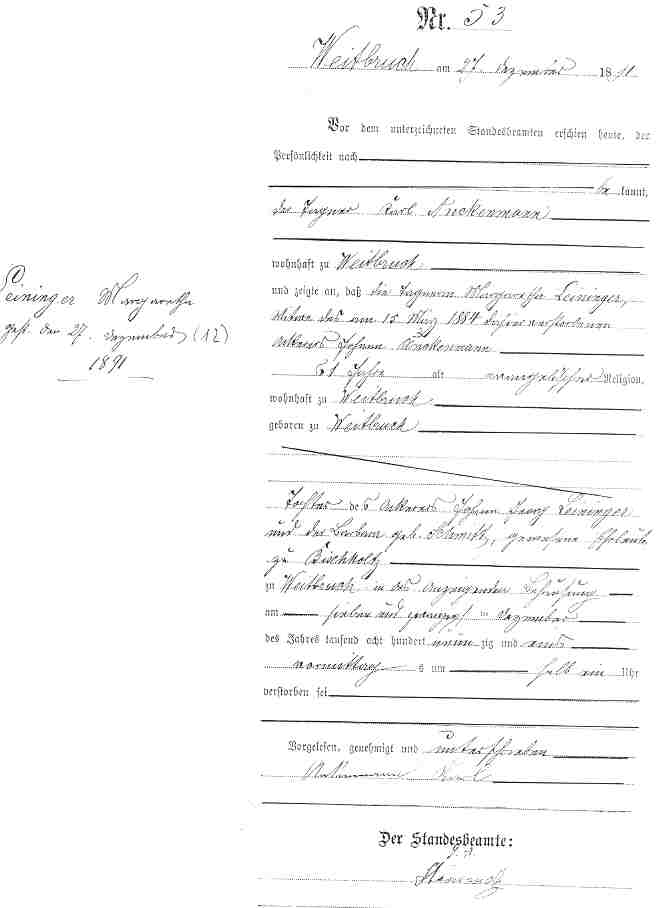 Nr. 53
Weitbruch am 27. Dezember 1891
Vor dem unterzeichneten Standesbeamten erschien heute, der
Persönlichkeit nach
be kannt,
der Tagner Karl Nuckenmann
wohnhaft zu Weitbruch
und zeigte an, daß die Tagnerin Margaretha Leininger,
Witwe des am 15 März 1884 dahier verstorbenen
Ackerers Johann
61 Jahre alt evangelischer Religion,
wohnhaft zu Weitbruch
geboren zu Weitbruch
Leininger Margaretha
gest. den 27. Dezember (12)
1891
Tochter des Ackerers Johann Georg Leininger
und der Barbara geb. Schmitt, gewesene Eheleute
zu Bischholtz
zu Weitbruch in des Anzeigenden Behausung
am sieben und zwanzigsten Dezember
des Jahres tausend acht hundert neun zig und eins
vormittags um halb ein Uhr
verstorben sei
Vorgelesen, genehmigt und unterschrieben
Karl
Der Standesbeamte: